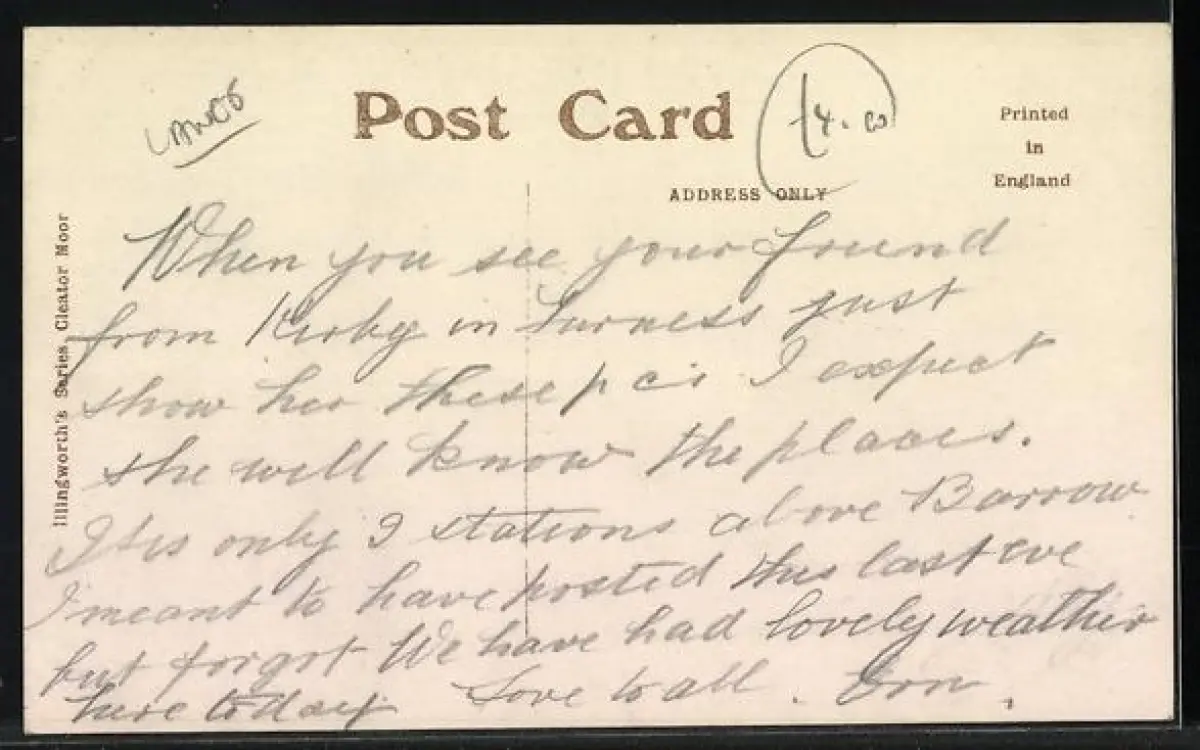 LANCS
Post Card
14.00
ADDRESS ONLY
Printed
in
England
Illingworth's Series, Cleator Moor
When you see your friend
from Kirby in Furness just
show her these p c's I expect
she will know the places.
It is only 3 stations above Barrow
I meant to have posted this last eve
but forgot We have had lovely weather
here today. Love to all.